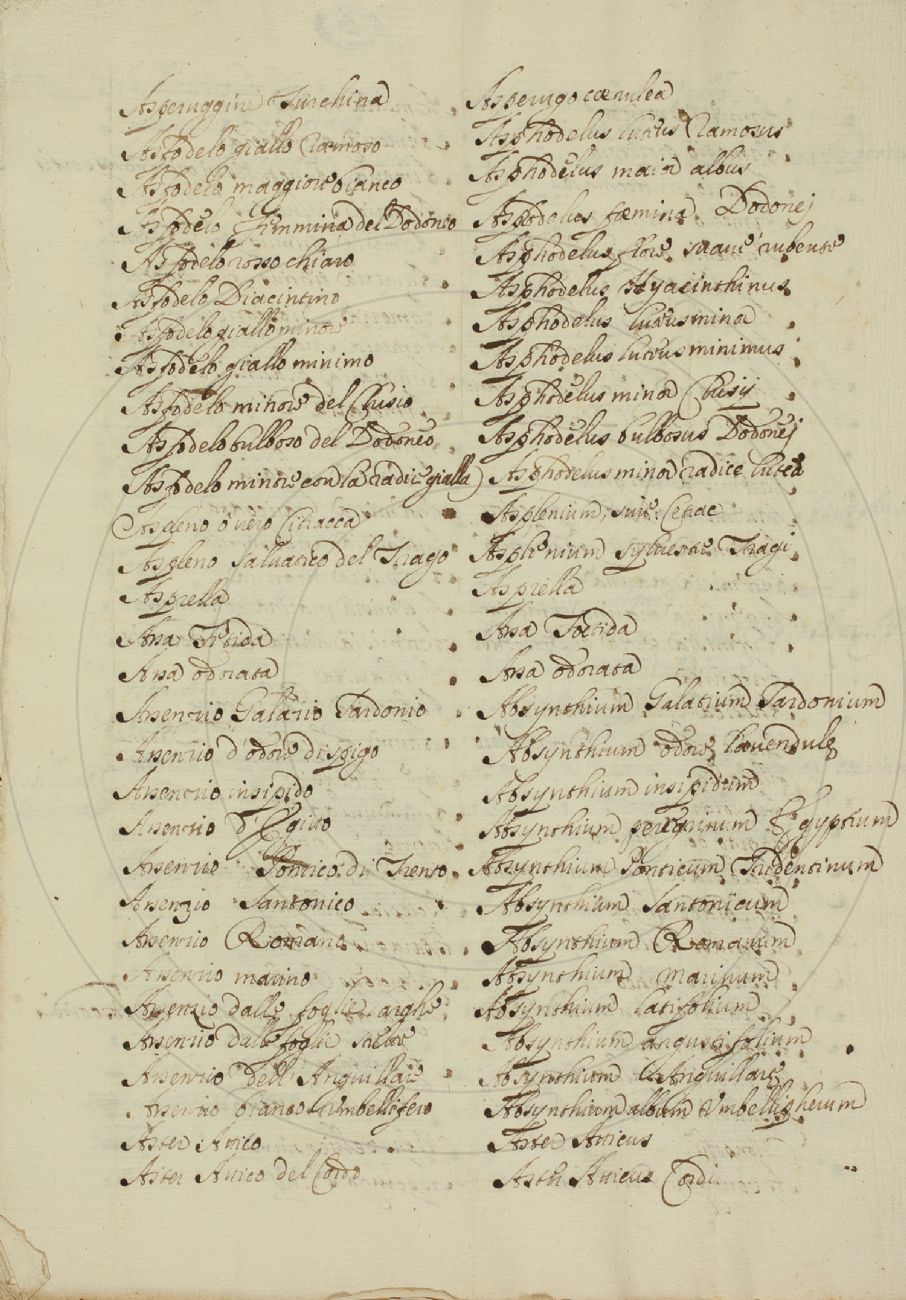 Asperuggine Turchina . Asperugo cærulea
Asfodelo giallo Ramoso . Asphodelus luteus Ramosus
Asfodelo maggiore bianco . Asphodelus maior albus
Asfodelo Femmina del Dodoneo Asphodelus fæmina Dodonej
Asfodelo rosso chiaro Asphodelus flore suave rubente
Asfodelo Diacintino . Asphodelus Hyacinthinus
Asfodelo giallo minore Asphodelus luteus minor
Asfodelo giallo minimo Asphodelus luteus minimus
Asfodelo minore del Clusio . Asphodelus minor Clusij
Asfodelo bulboso del Dodoneo . Asphodelus bulbosus Dodonej
Asfodelo minore con la radice gialla) Asphodelus minor radice lutea
Aspleno overo Citracca . Asplenium, sive Cetrac
Aspleno salvatico del Trago Asplenium sylvestre Tragi
Asprella . Asprella
Assa Fetida . Assa Foetida
Assa odorata . Assa odorata
Assentio Galatio Sardonio . Absynthium Galatium Sardonium
Assentio d'odore di spigo . Absynthium odore lavendulæ
Assentio insipido . Absynthium insipidum
Assentio d'Egitto Absynthium peregrinum Ægyptium
Assentio Pontico di Trento . Absynthium Ponticum Tridentinum
Assenzio Santonico . Absynthium Santonicum
Assentio Romano . Absynthium Romanum
Assentio marino Absynthium marinum
Assenzio dalle foglie larghe . Absynthium latifolium
Assentio dalle foglie strette Absynthium angustifolium .
Assentio dell'Anguillare . Absynthium Anguillare
Assentio bianco Umbellifero Absynthium album Umbellipherum
Aster Attico . Aster Atticus
Aster Attico del Cordo Aster Atticus Cordi